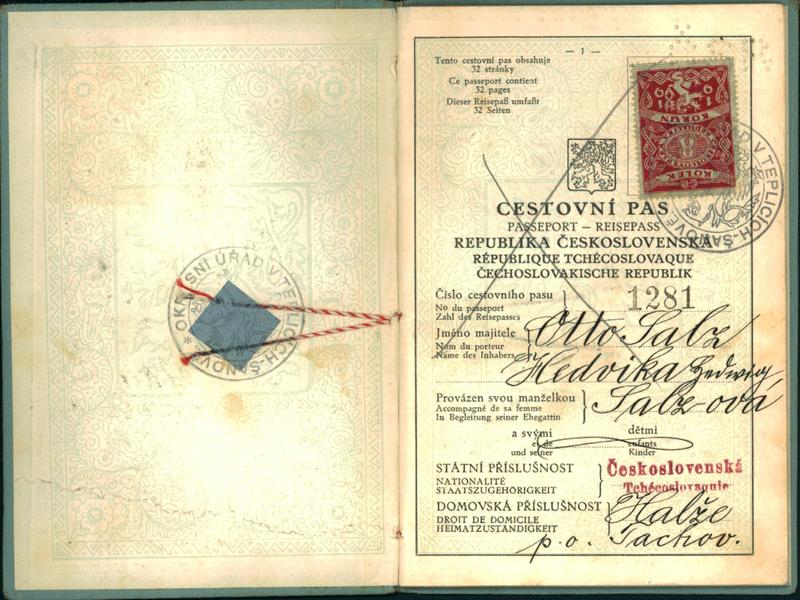 OKRESNÍ ÚŘAD V TEPLICÍCH-ŠANOVĚ
— 1 —
Tento cestovní pas obsahuje
32 stránky
Ce passeport contient
32 pages
Dieser Reisepaß umfaßt
32 Seiten
1919
KORUN
KOLEK
ČR
ÚŘAD V TEPLICÍCH-ŠANOVĚ
CESTOVNÍ PAS
PASSEPORT – REISEPASS
REPUBLIKA ČESKOSLOVENSKÁ
RÉPUBLIQUE TCHÉCOSLOVAQUE
ČECHOSLOVAKISCHE REPUBLIK
Číslo cestovního pasu
No du passeport
Zahl des Reisepasses
1281
Jméno majitele
Nom du porteur
Name des Inhabers
Otto Salz
Hedvika Hedwig
Provázen svou manželkou
Accompagné de sa femme
In Begleitung seiner Ehegattin
Salz-ová
a svými dětmi
et de enfants
und seiner Kinder
STÁTNÍ PŘÍSLUŠNOST
NATIONALITÉ
STAATSZUGEHÖRIGKEIT
Československá
Tchécoslovaquie
DOMOVSKÁ PŘÍSLUŠNOST
DROIT DE DOMICILE
HEIMATZUSTÄNDIGKEIT
Halže
p.o. Tachov.